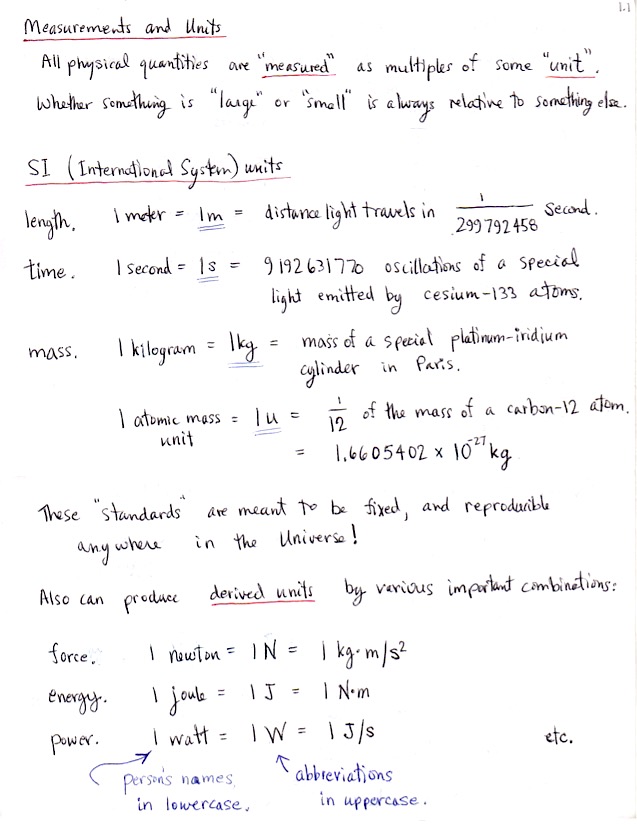 1.1
Measurements and Units
All physical quantities are "measured" as multiples of some "unit".
Whether something is "large" or "small" is always relative to something else.
SI (International System) units
length. 1 meter = 1m = distance light travels in 1/299792458 second.
time. 1 second = 1s = 9192631770 oscillations of a special
light emitted by cesium-133 atoms.
mass. 1 kilogram = 1kg = mass of a special platinum-iridium
cylinder in Paris.
1 atomic mass = 1u = 1/12 of the mass of a carbon-12 atom.
unit
= 1.6605402 × 10⁻²⁷ kg
These "standards" are meant to be fixed, and reproducible
anywhere in the Universe!
Also can produce derived units by various important combinations:
force. 1 newton = 1N = 1 kg·m/s²
energy. 1 joule = 1J = 1 N·m
power. 1 watt = 1W = 1 J/s etc.
person's names
in lowercase.
abbreviations
in uppercase.